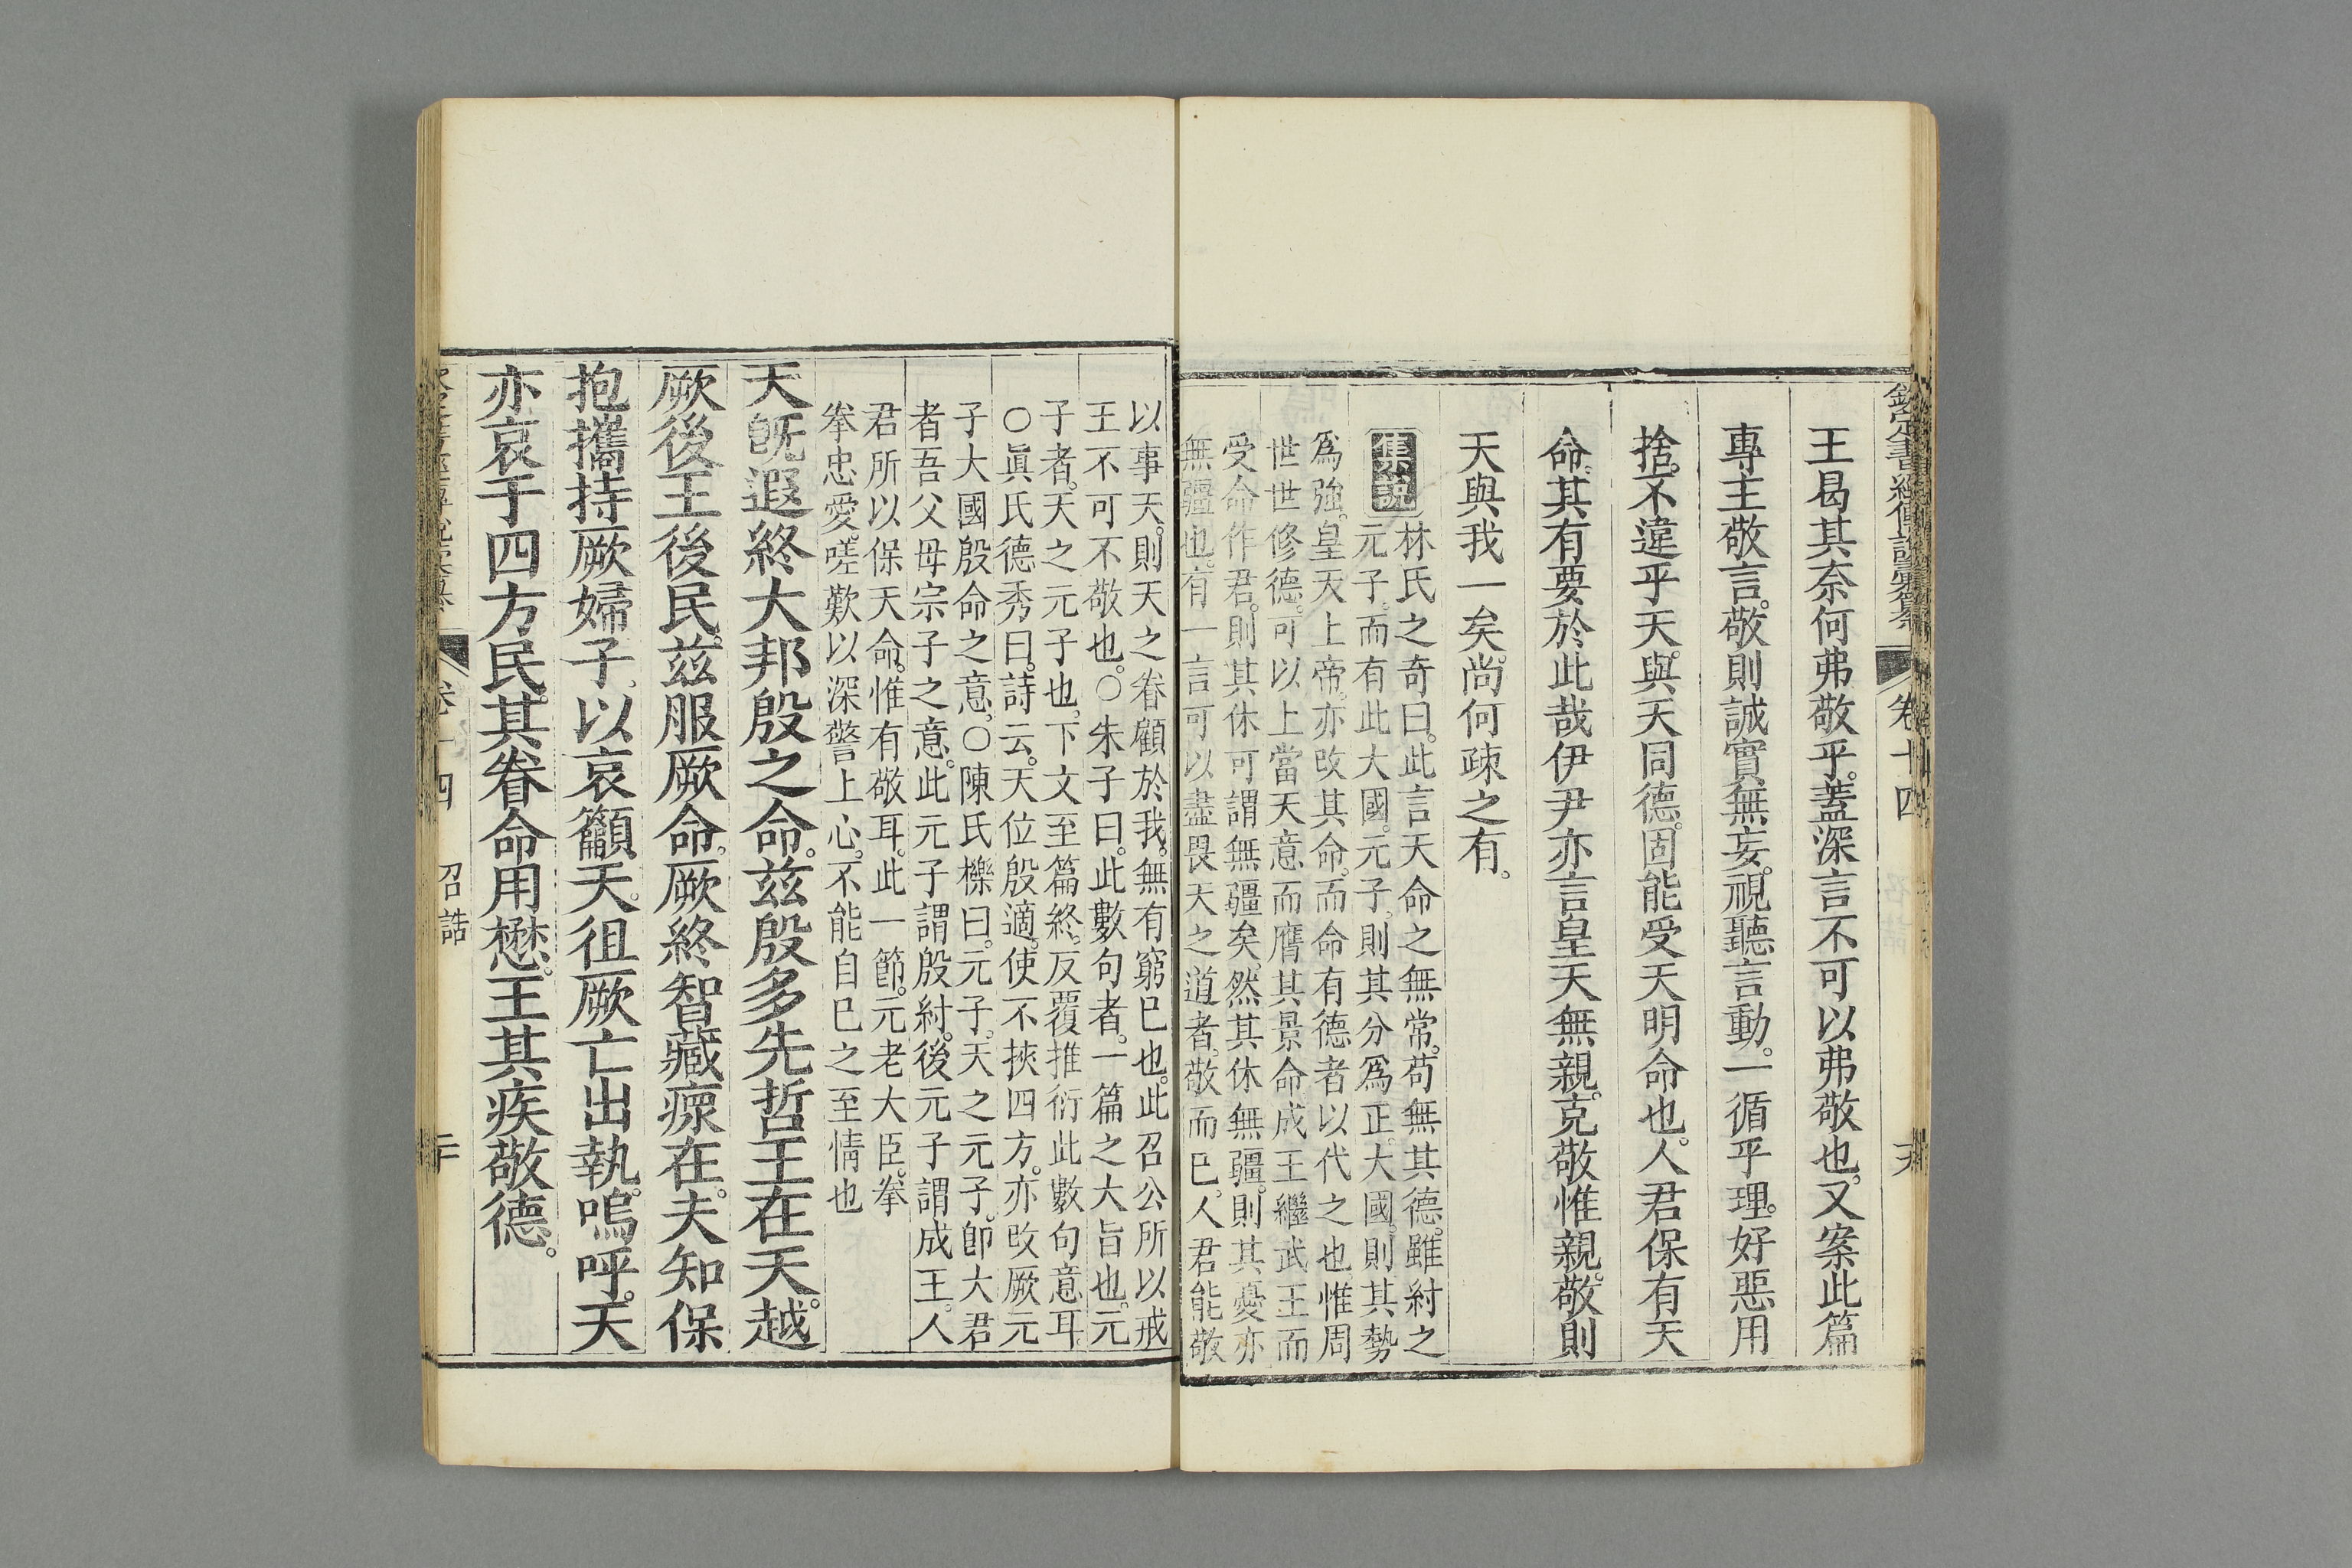 欽定書經傳說彙纂 卷十四
王曷其奈何弗敬乎。蓋深言不可以弗敬也。又案此篇
專主敬言。敬則誠實無妄。視聽言動。一循乎理。好惡用
捨。不違乎天。與天同德。固能受天明命也。人君保有天
命。其有要於此哉伊尹亦言皇天無親。克敬惟親。敬則
天與我一矣。尚何疎之有。
集說 林氏之奇曰。此言天命之無常。苟無其德。雖紂之
元子。而有此大國。元子。則其分爲正。大國。則其勢
爲強。皇天上帝。亦改其命。而命有德者以代之也。惟周
世世修德。可以上當天意。而膺其景命。成王繼武王而
受命作君。則其休可謂無疆矣。然其休無疆。則其憂亦
無疆也。有一言可以盡畏天之道者。敬而已。人君能敬
以事天。則天之眷顧於我。無有窮已也。此召公所以戒
王不可不敬也。○朱子曰。此數句者。一篇之大旨也。元
子者。天之元子也。下文至篇終。反覆推衍此數句意耳。
○眞氏德秀曰。詩云。天位殷適。使不挾四方。亦改厥元
子大國殷命之意。○陳氏櫟曰。元子。天之元子。卽大君
者吾父母宗子之意。此元子謂殷紂。後元子謂成王。人
君所以保天命。惟有敬耳。此一節。元老大臣。拳
拳忠愛。嗟歎以深警上心。不能自已之至情也
天旣遐終大邦殷之命。茲殷多先哲王在天。越
厥後王後民。茲服厥命。厥終智藏瘝在。夫知保
抱攜持厥婦子。以哀籲天。徂厥亡出執。嗚呼。天
亦哀于四方民。其眷命用懋。王其疾敬德。
四 召誥